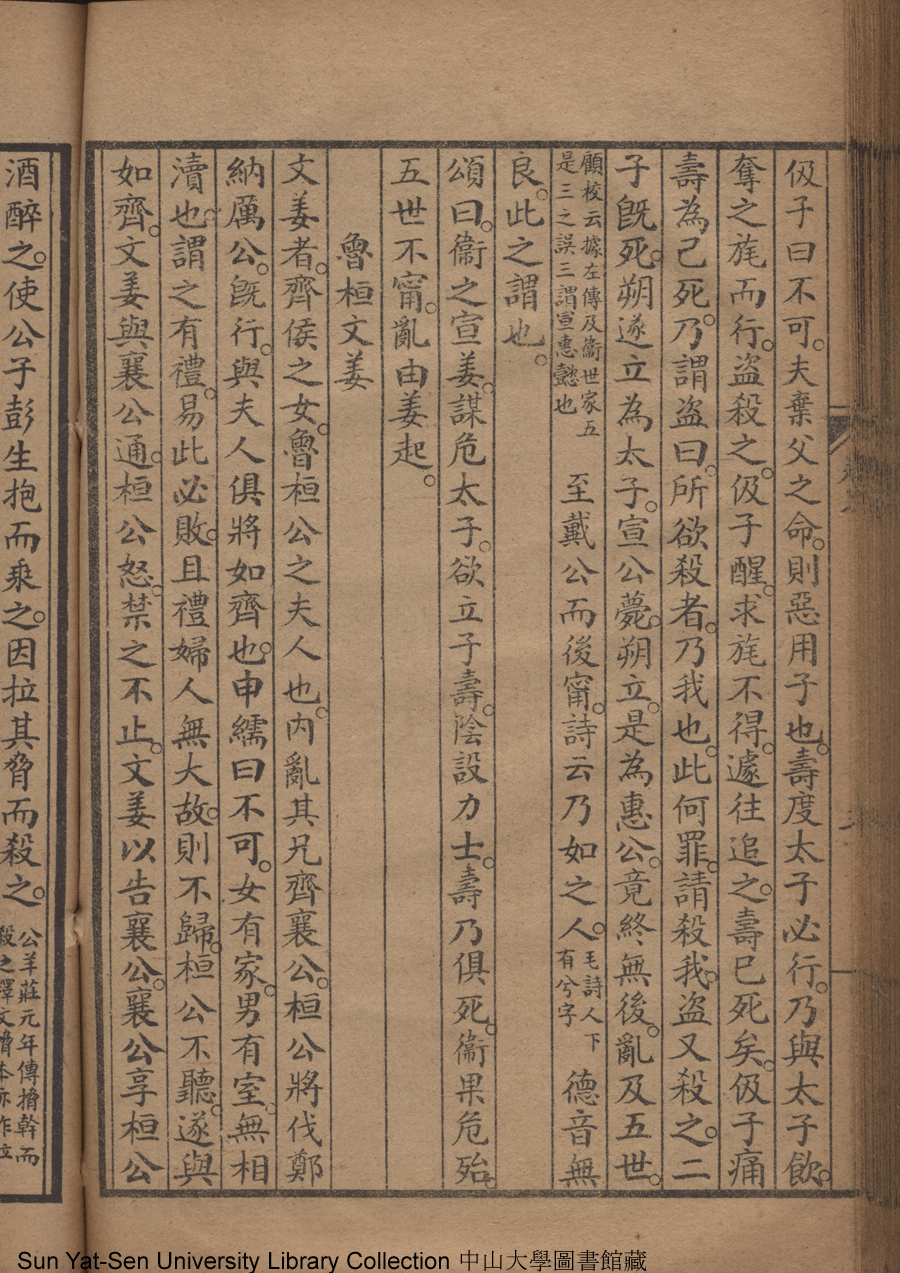 伋子曰不可。夫棄父之命。則惡用子也。壽度太子必行。乃與太子飲。
奪之旄而行。盜殺之。伋子醒。求旄不得。遽往追之。壽已死矣。伋子痛
壽為己死。乃謂盜曰。所欲殺者。乃我也。此何罪。請殺我。盜又殺之。二
子旣死。朔遂立為太子。宣公薨。朔立。是為惠公。竟終無後。亂及五世。
顧校云據左傳及衞世家五是三之誤三謂宣惠懿也 至戴公而後甯。詩云乃如之人。毛詩人下有兮字 德音無
良。此之謂也。
頌曰。衞之宣姜。謀危太子。欲立子壽。陰設力士。壽乃俱死。衞果危殆。
五世不甯。亂由姜起。
魯桓文姜
文姜者。齊侯之女。魯桓公之夫人也。內亂其兄齊襄公。桓公將伐鄭
納厲公。旣行。與夫人俱將如齊也。申繻曰不可。女有家。男有室。無相
瀆也。謂之有禮。易此必敗。且禮婦人無大故。則不歸。桓公不聽。遂與
如齊。文姜與襄公通。桓公怒。禁之不止。文姜以告襄公。襄公享桓公
酒醉之。使公子彭生抱而乘之。因拉其脅而殺之。公羊莊元年傳搚幹而殺之釋文搚本亦作拉
Sun Yat-Sen University Library Collection 中山大學圖書館藏